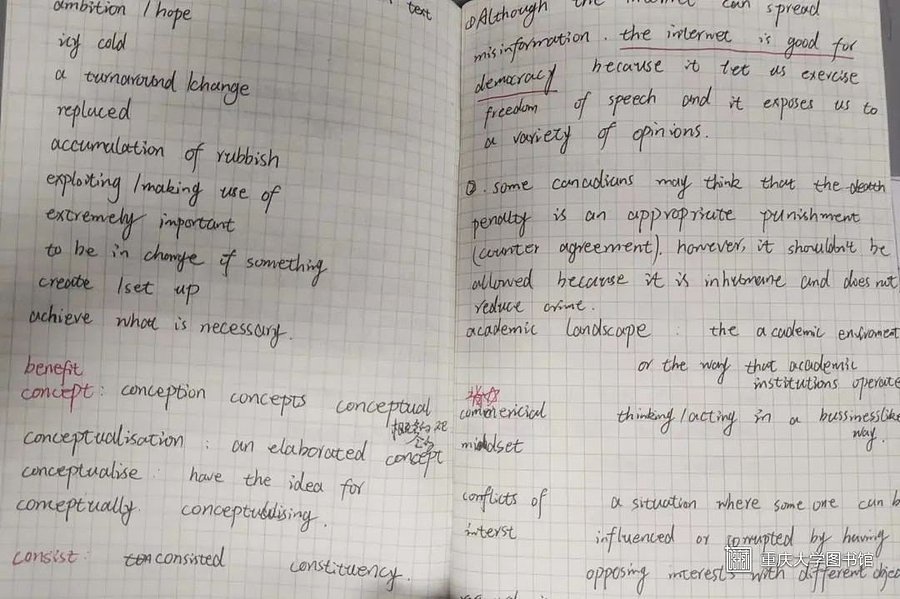 ambition / hope
text
icy cold
a turnaround / change
replaced
accumulation of rubbish
exploiting / making use of
extremely important
to be in change of something
create / set up
achieve what is necessary.
benefit
concept: conception concepts conceptual
conceptualisation : an elaborated concept
conceptualise: have the idea for
conceptually conceptulising.
consist: consisted constituency.
① Although the internet can spread
misinformation. the internet is good for
democracy because it let us exercise
freedom of speech and it exposes us to
a variety of opinions.
②. some canadians may think that the death
penalty is an appropriate punishment
(counter agreement). however, it shouldn't be
allowed because it is inhumane and does not
reduce crime.
academic landscape : the academic enviroment
or the way that academic
institutions operate
commericial thinking / acting in a bussinesslike
mindset way.
conflicts of a situation where some one can b
interst influenced or corrupted by having
opposing interests with different objec
重庆大学图书馆